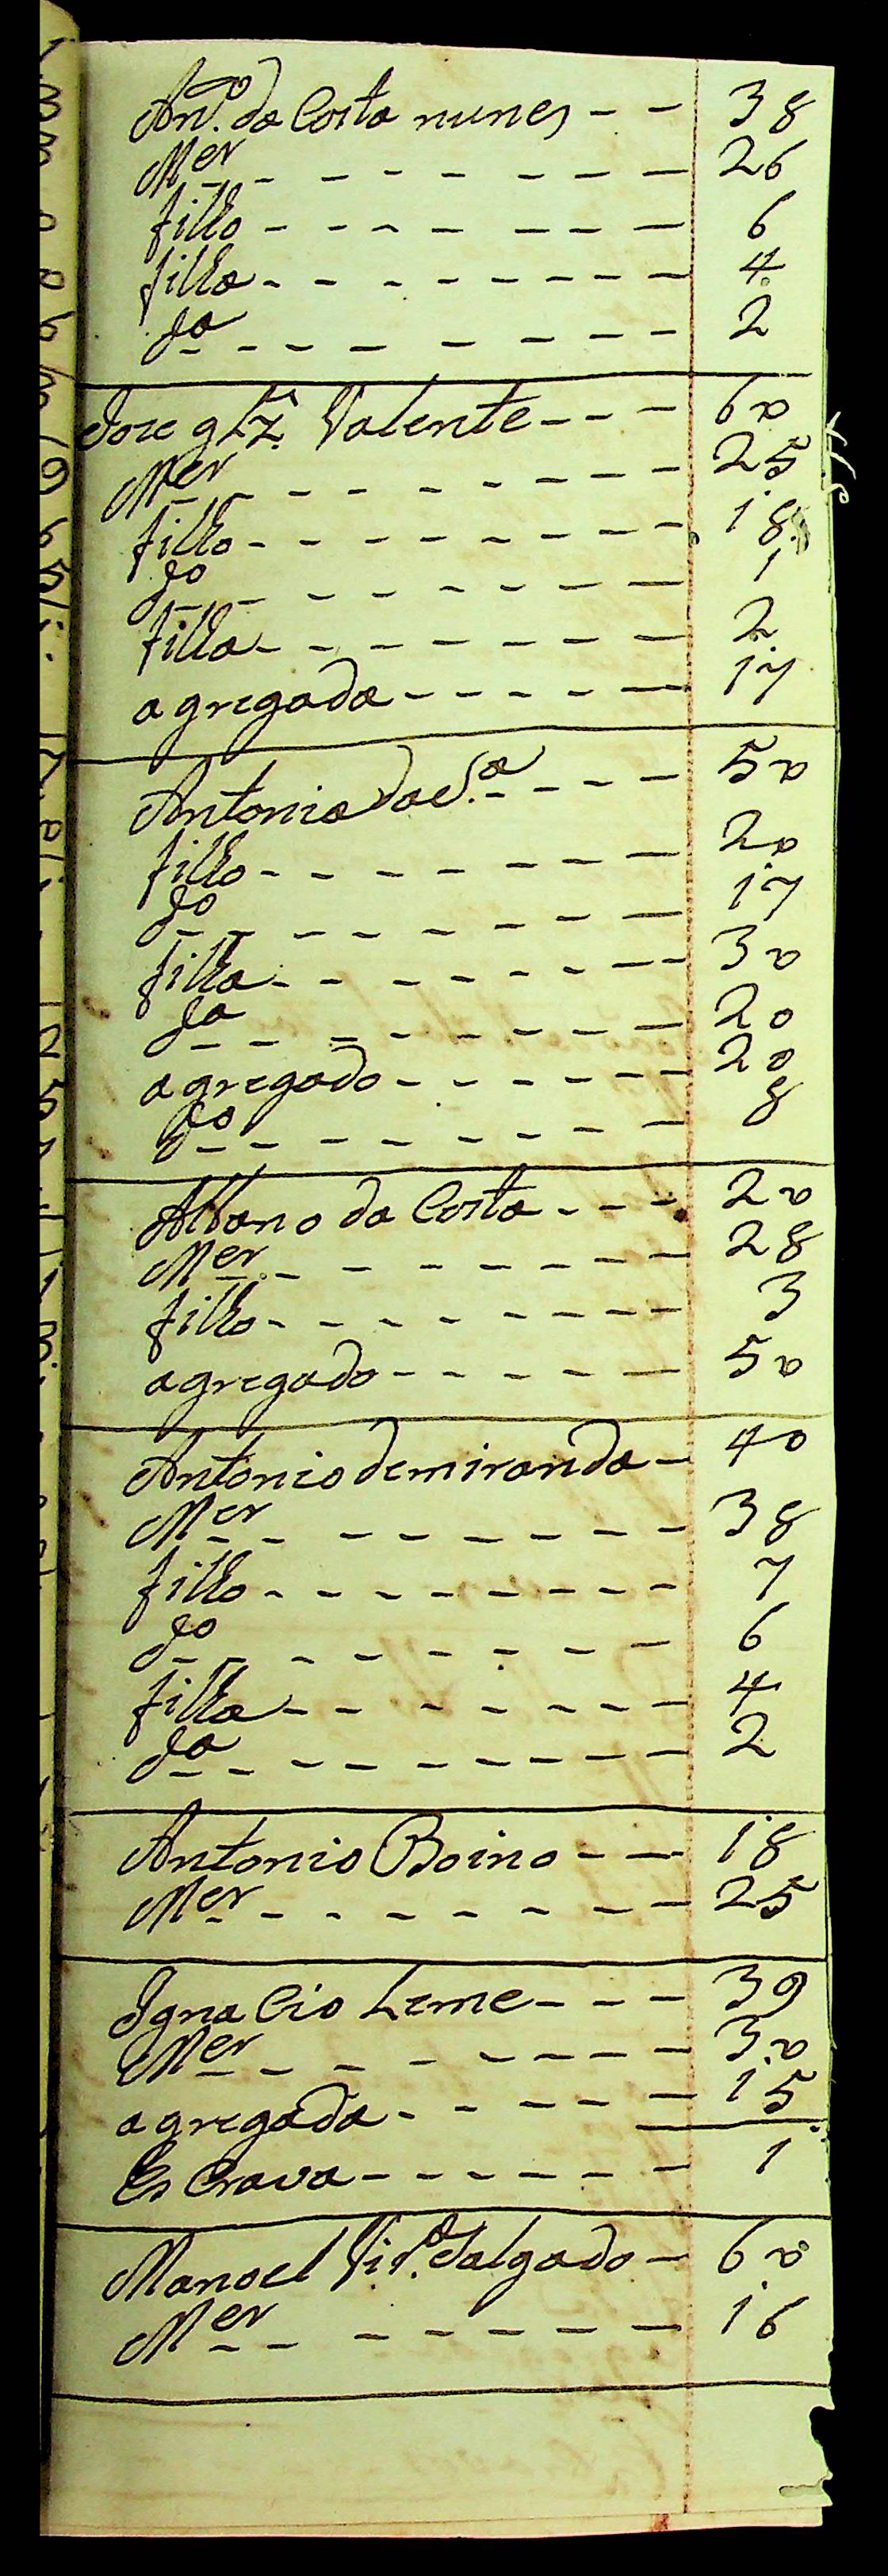 Anto. da Costa nunes - - 38
Mer - - - - - - - 26
filho - - - - - - - 6
filha - - - - - - - - 4
da - - - - - - - 2
Joze glz. Valente - - - 60
Mer - - - - - - - 25
filho - - - - - - - - 18
do - - - - - - - 1
filha - - - - - - - - 2
agregada - - - - - 17
Antonia da Sa. - - - - 50
filho - - - - - - - 20
do - - - - - - - - 17
filha - - - - - - - - 30
da - - - - - - - - 20
agregado - - - - - - 20
do - - - - - - - 8
Albano da Costa - - - - 20
Mer - - - - - - - 28
filho - - - - - - - - 3
agregado - - - - - - 50
Antonio de miranda - 40
Mer - - - - - - - 38
filho - - - - - - - - 7
do - - - - - - - 6
filha - - - - - - - 4
da - - - - - - - - 2
Antonio Boino - - 18
Mer - - - - - - - 25
Igna Cio Leme - - - 39
Mer - - - - - - - - 30
agregada - - - - - - 15
Es Crava - - - - - - 1
Manoel Salgado - 60
Mer - - - - - - - 16